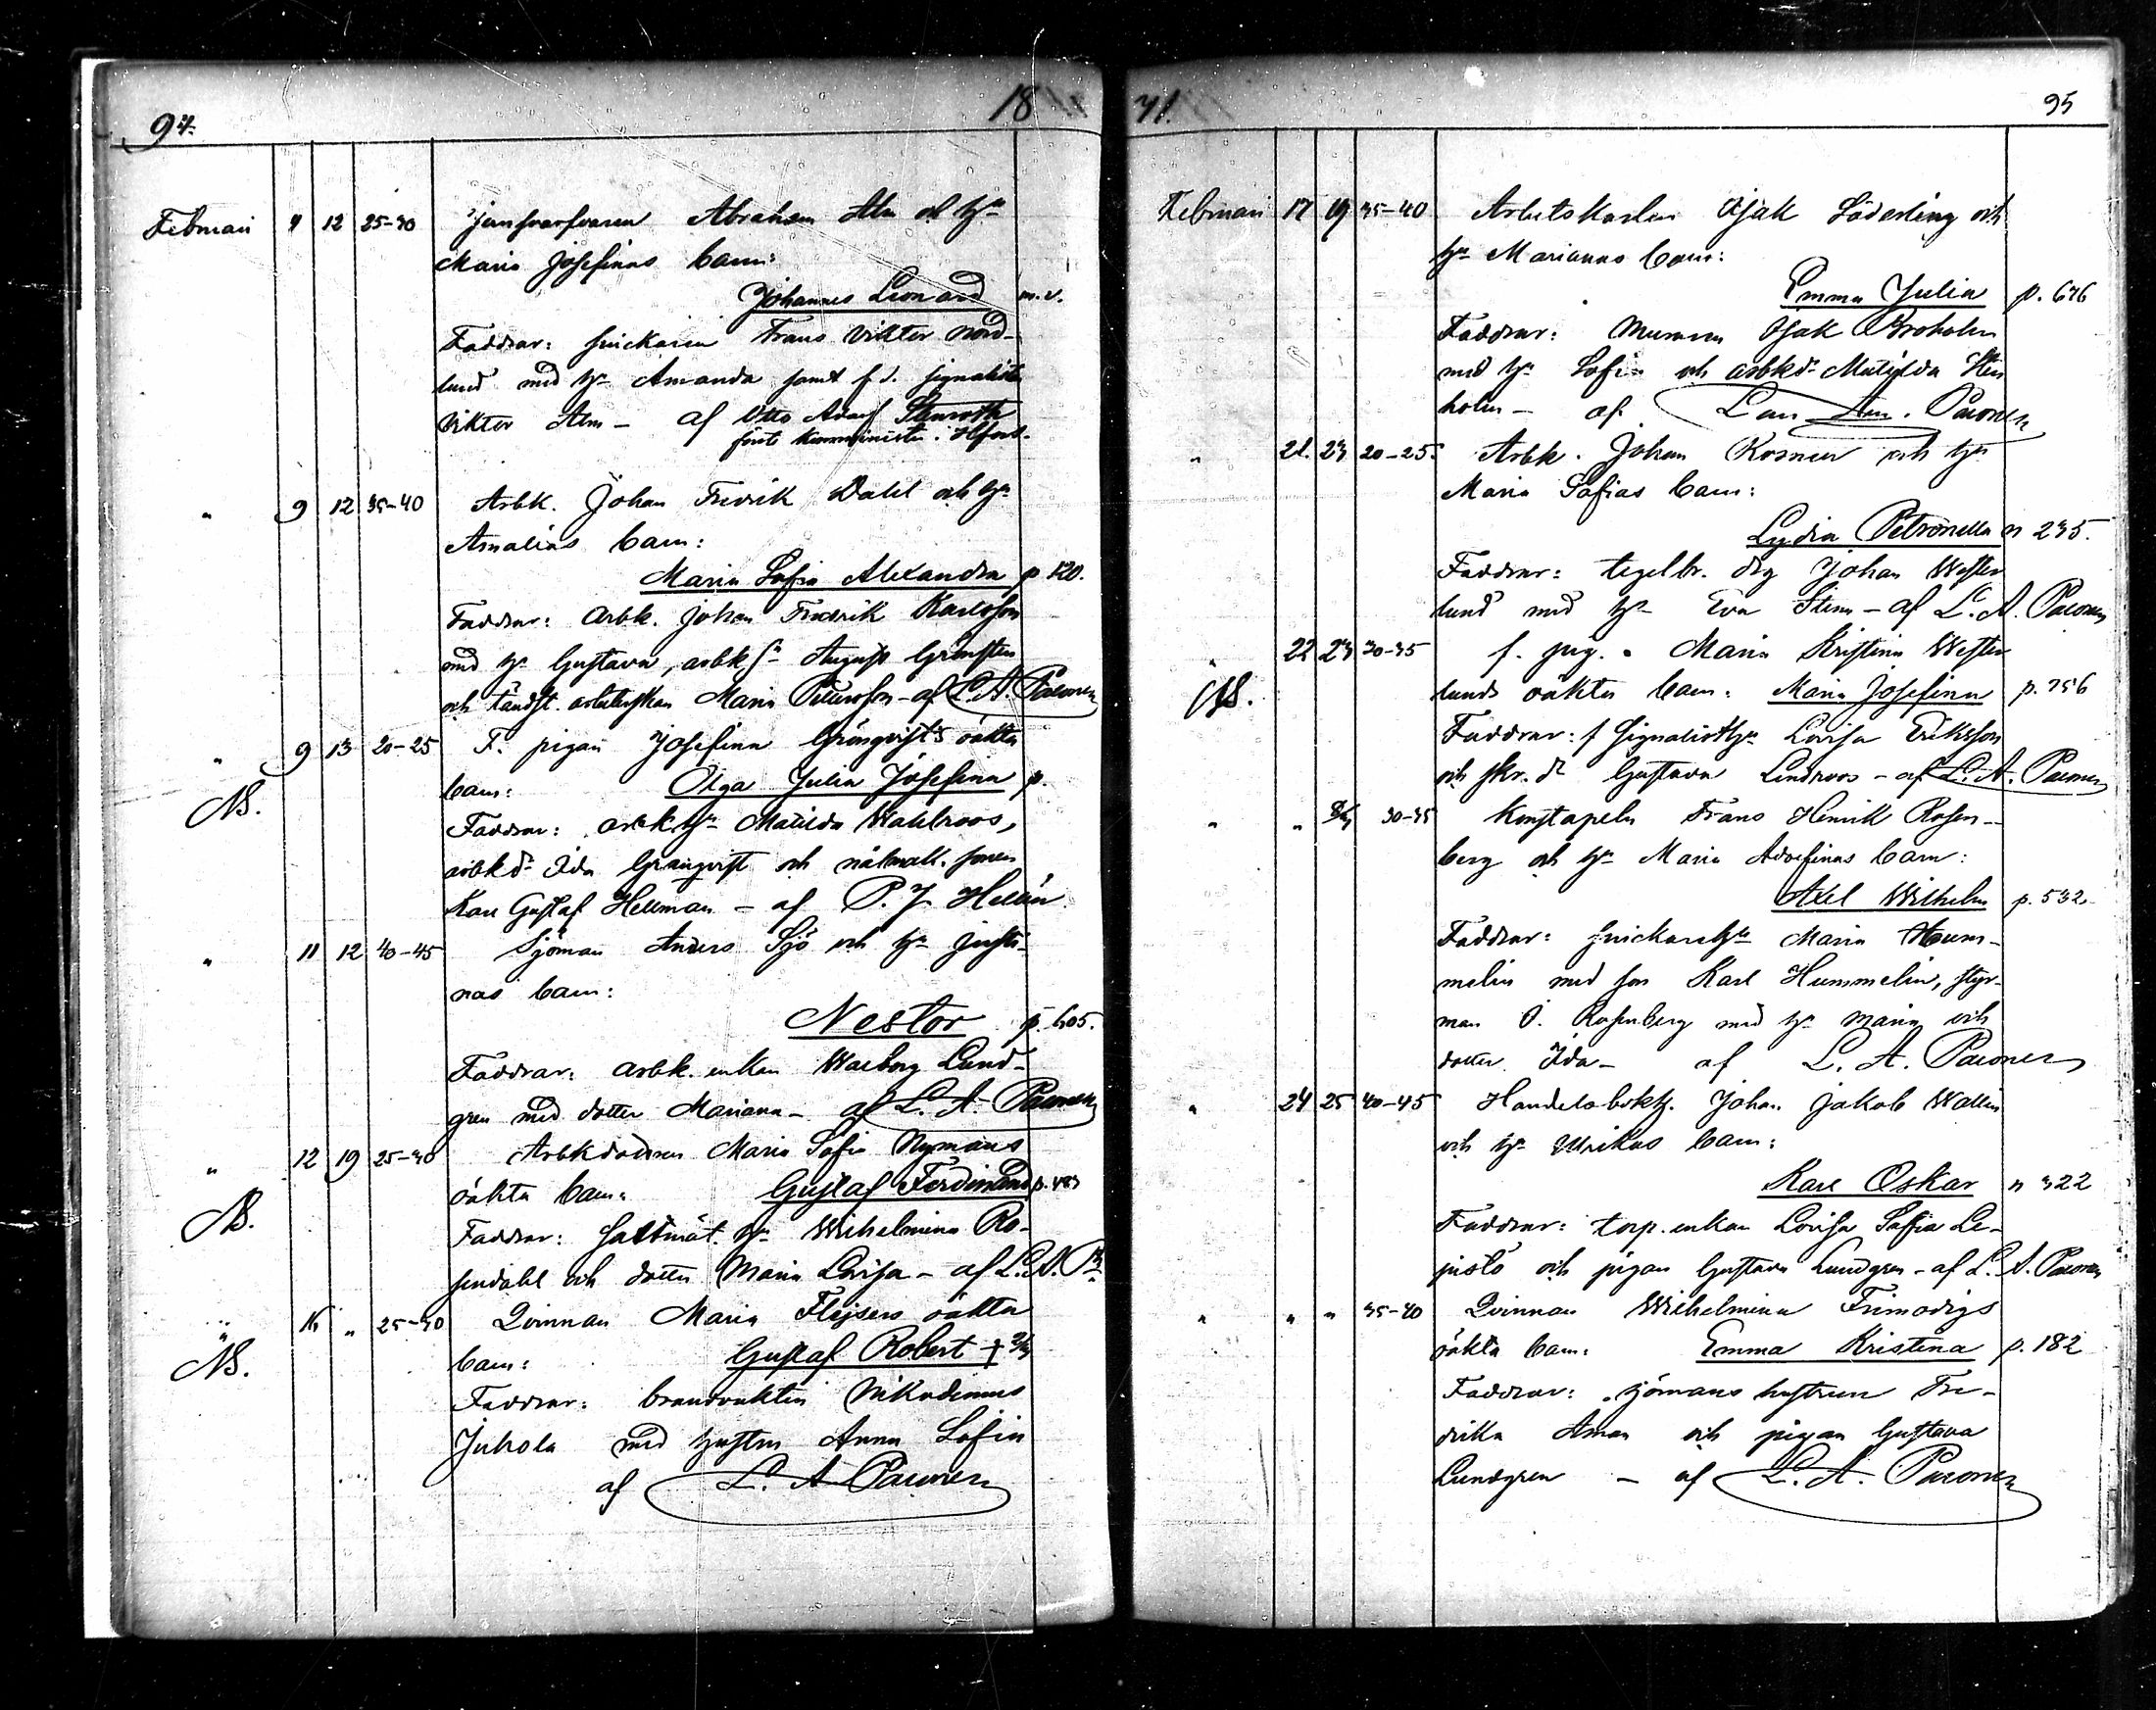 94.
18
Februari 9 12 25-30 Abraham Alm och h:u
Maria Josefinas barn:
Johannes Leonard m.v.
Faddrar: snickaren Frans Viktor Nord-
lund med h:u Amanda samt f.d. signalisten
Viktor Alm – af Otto Adolf Stenroth
kommminister i H:fors.
" 9 12 35-40 Arbk. Johan Fredrik Dahl och h:u
Amalias barn:
Maria Sofia Alexandra p 120.
Faddrar: arbk. Johan Fredrik Karlsson
med h:u Gustava, arbk s:n August Grönsten
och tändst. arbeterskan Maria Petterson – af L. A. Paeonen
" 9 13 20-25 F. pigan Josefina Grönqvist's oäkta
NB.
barn: Olga Julia Josefina p.
Faddrar: arbk h:u Matilda Wahlroos,
arbk d:r Ida Grönqvist och nålmak. sonen
Karl Gustaf Hellman – af P. J. Hellén
" 11 12 40-45 Sjöman Anders Sjö och h:u Justi-
nas barn:
Nestor p. 605.
Faddrar: arbk. enkan Walborg Lund-
gren med dotter Mariana – af L. A. Paeonen
" 12 19 25-30 Arbkdottren Maria Sofia Nymans
NB.
oäkta barn: Gustaf Ferdinand p. 483
Faddrar: h:u Wilhelmina Ro-
sendahl och dotter Maria Lovisa – af L. A. P:n
" 16 " 25-30 Qvinnan Maria Flejsers oäkta
NB.
barn: Gustaf Robert +
Faddrar: brandvakten Nikodemus
Juhola med hustru Anna Sofia
af L. A Paeonen
71.
95
Februari 17 19 35-40 Arbetskarlen Isak Söderling och
h:u Marianas barn:
Emma Julia p. 676
Faddrar: Muraren Isak Broholm
med h:u Sofia och arbkd:r Matilda Sten
holm – af Paeonen
" 21. 23 20-25 Arbk. Johan Rosneu och h:u
Maria Sofias barn:
Lydia Petronella n 235.
Faddrar: tegelbr. drg Johan Wester
lund med h:u Eva Stina – af L. A. Paeonen
" 22 23 30-35 f. pig. Maria Kristina Wester
NB.
lunds oäkta barn: Maria Josefina p. 756
Faddrar: f signalisth:u Lovisa Eriksson
och skr. d:r Gustava Lindroos – af L. A. Paeonen
" " 30-35 Konstapeln Frans Henrik Rosen-
berg och h:u Maria Adolfinas barn:
Axel Wilhelm p. 532.
Faddrar: snickareh:u Maria Hum-
melin med son Karl Hummelin, styr-
man O. Rosenberg med h:u Maria och
dotter Ida – af L. A. Paeonen
" 24 25 40-45 Handelsbokh. Johan Jakob Wallin
och h:u Ulrikas barn:
Karl Oskar n 322
Faddrar: torp. enkan Lovisa Sofia Le-
pistö och pigan Gustava Lundgren – af L. A. Paeonen
" " " 35-40 Qvinnan Wilhelmina Frimodigs
oäkta barn: Emma Kristina p. 182
Faddrar: sjömans hustrun Fre-
drika Aman och pigan Gustava
Lundgren – af L. A. Paeonen